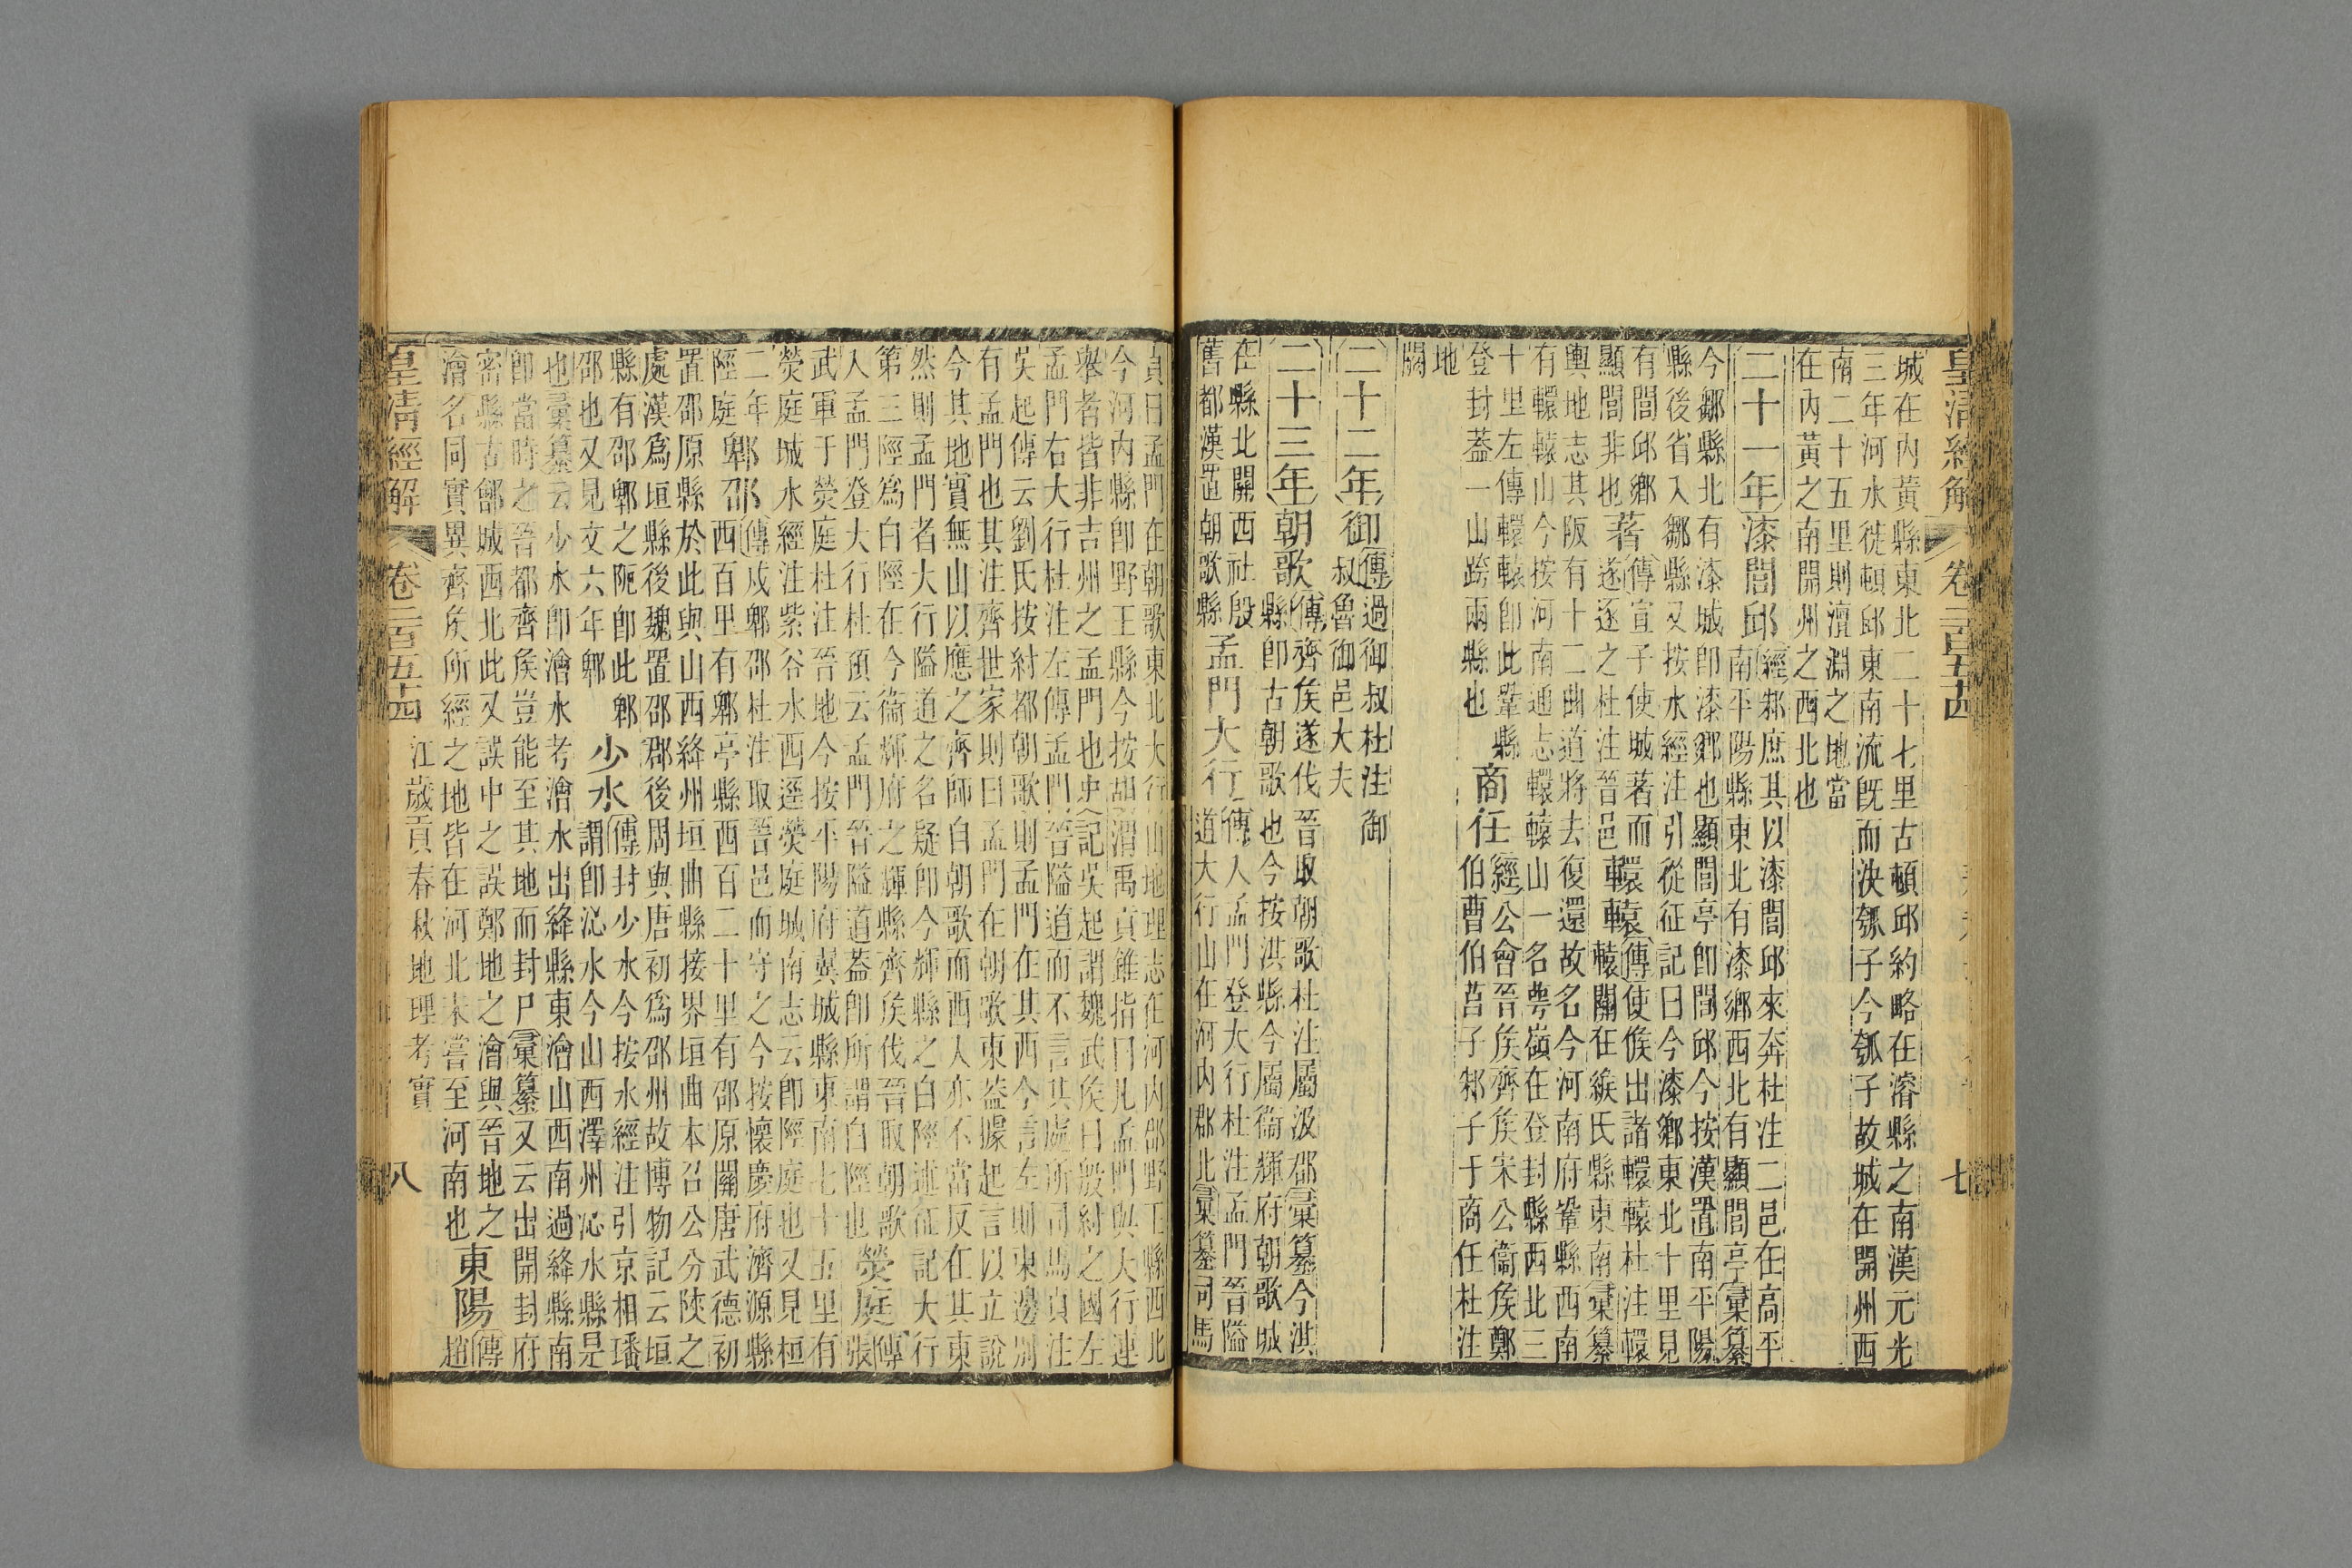 皇清經解 卷二百五十四 七
城在內黃縣東北二十七里古頓邱約略在濬縣之南漢元光
三年河水徙頓邱東南流旣而決瓠子今瓠子故城在開州西
南二十五里則澶淵之地當
在內黃之南開州之西北也
二十一年 漆閭邱 經邾庶其以漆閭邱來奔杜注二邑在高平
南平陽縣東北有漆鄉西北有顯閭亭彙纂
今鄒縣北有漆城卽漆鄉也顯閭亭卽閭邱今按漢置南平陽
縣後省入鄒縣又按水經注引從征記曰今漆鄉東北十里見
有閭邱鄉
顯閭非也
著 傳宣子使城著而
遂逐之杜注晉邑
轘轅 傳使候出諸轘轅杜注轘
轅關在緱氏縣東南彙纂
輿地志其阪有十二曲道將去復還故名今河南府鞏縣西南
有轘轅山今按河南通志轘轅山一名崿嶺在登封縣西北三
十里左傳轘轅卽此鞏縣
登封葢一山跨兩縣也
商任 經公會晉矦齊矦宋公衞矦鄭
伯曹伯莒子邾子于商任杜注
地
闕
二十二年 御 傳過御叔杜注御
叔魯御邑大夫
二十三年 朝歌 傳齊矦遂伐晉取朝歌杜注屬汲郡彙纂今淇
縣卽古朝歌也今按淇縣今屬衞輝府朝歌城
在縣北關西社殷
舊都漢置朝歌縣
孟門大行 傳入孟門登大行杜注孟門晉隘
道大行山在河內郡北彙纂司馬
貞曰孟門在朝歌東北大行山地理志在河內郡野王縣西北
今河內縣卽野王縣今按胡渭禹貢錐指曰凡孟門與大行連
舉者皆非吉州之孟門也史記吳起謂魏武矦曰殷紂之國左
孟門右大行杜注左傳孟門晉隘道而不言其處所司馬貞注
吳起傳云劉氏按紂都朝歌則孟門在其西今言左則東邊別
有孟門也其注齊世家則曰孟門在朝歌東葢據起言以立說
今其地實無山以應之齊師自朝歌而西入亦不當反在其東
然則孟門者大行隘道之名疑卽今輝縣之白陘述征記大行
第三陘爲白陘在今衞輝府之輝縣齊矦伐晉取朝歌
入孟門登大行杜預云孟門晉隘道葢卽所謂白陘也
熒庭 傳
張
武軍于熒庭杜注晉地今按平陽府翼城縣東南七十五里有
熒庭城水經注紫谷水西逕熒庭城南志云卽陘庭也又見桓
二年
陘庭
郫邵 傳戍郫邵杜注取晉邑而守之今按懷慶府濟源縣
西百里有郫亭縣西百二十里有邵原關唐武德初
置邵原縣於此與山西絳州垣曲縣接界垣曲本召公分陝之
處漢爲垣縣後魏置邵郡後周與唐初爲邵州故博物記云垣
縣有邵郫之阨卽此郫
邵也又見文六年郫
少水 傳封少水今按水經注引京相璠
謂卽沁水今山西澤州沁水縣是
也彙纂云少水卽澮水考澮水出絳縣東澮山西南過絳縣南
卽當時之晉都齊矦豈能至其地而封尸彙纂又云出開封府
密縣古鄶城西北此又誤中之誤鄭地之澮與晉地之
澮名同實異齊矦所經之地皆在河北未嘗至河南也
東陽 傳
趙
皇清經解 卷二百五十四 江歲貢春秋地理考實 八